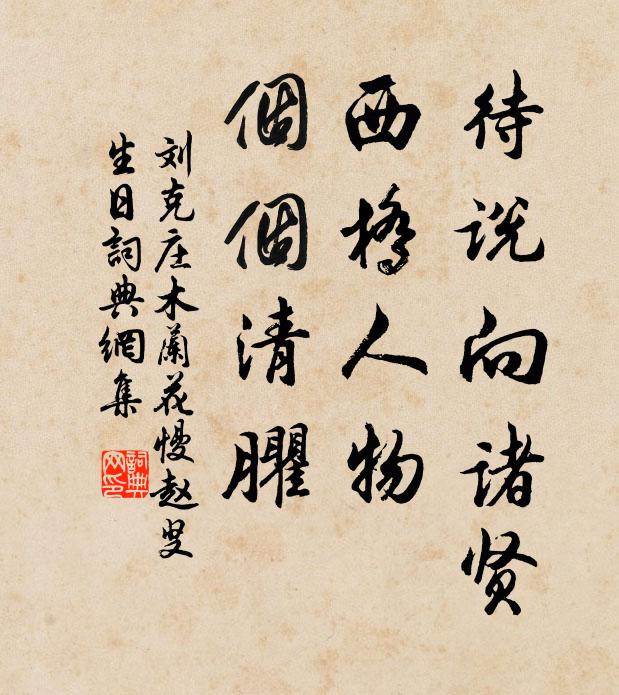 待说向诸贤
西桥人物
個個清臞
刘克庄木蘭花慢赵叟
生日詞典網集
詞典网印